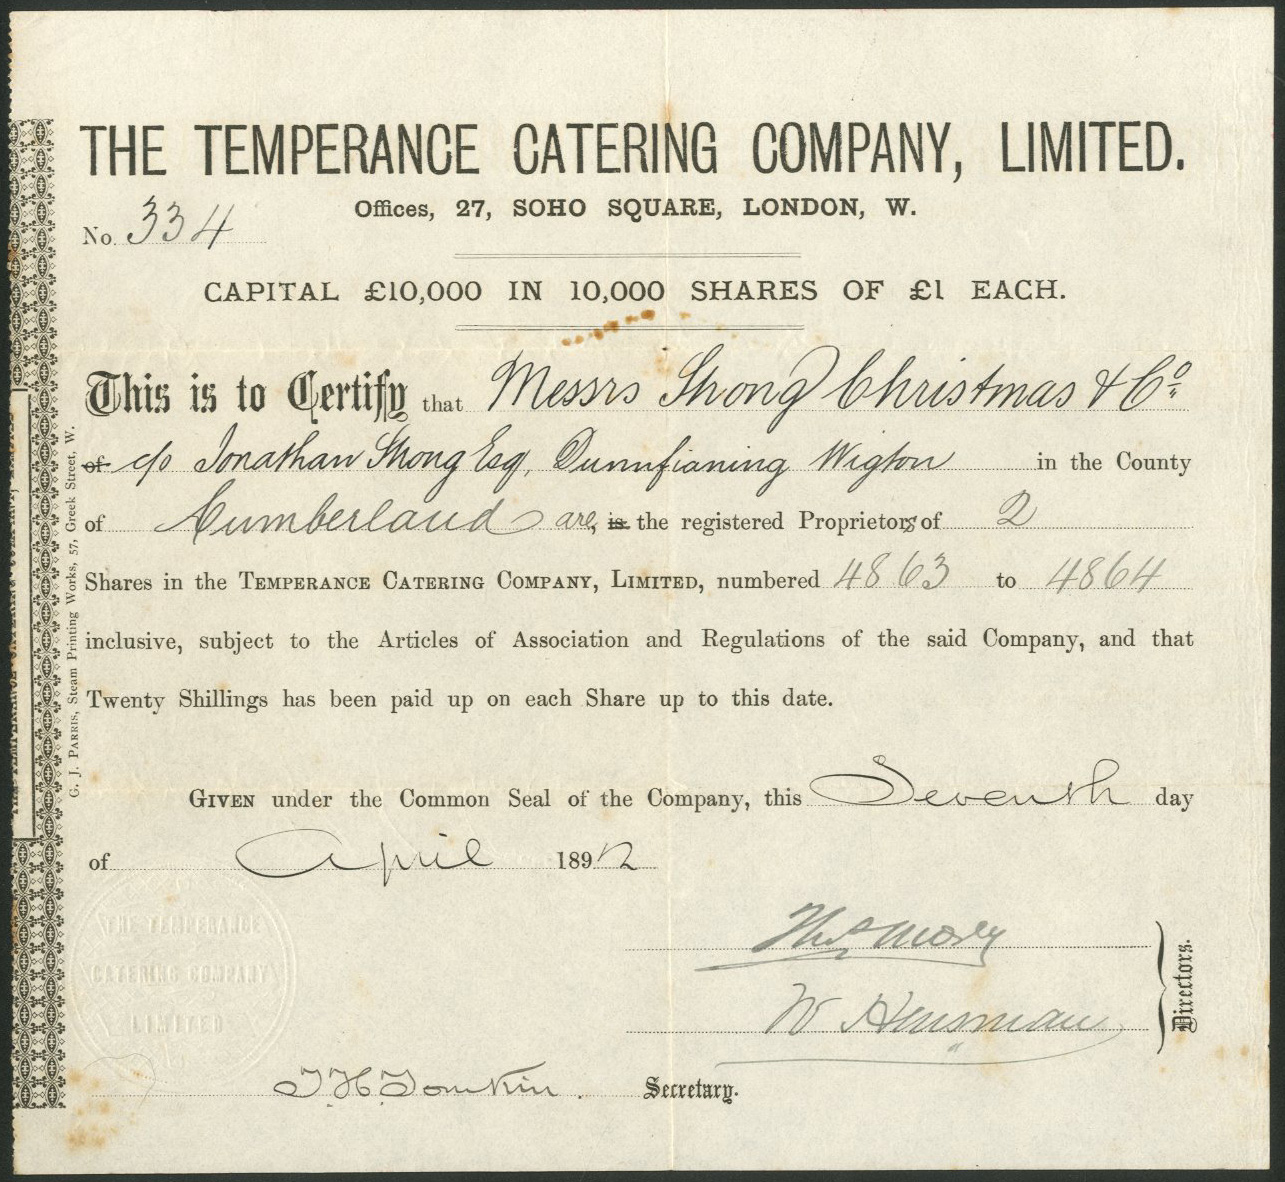 THE TEMPERANCE CATERING COMPANY, LIMITED.
Offices, 27, SOHO SQUARE, LONDON, W.
No. 334
CAPITAL £10,000 IN 10,000 SHARES OF £1 EACH.
This is to Certify that Messrs Strong Christmas & Co.
of c/o Jonathan Strong Esq, Wigton in the County
of Cumberland are, is the registered Proprietors of 2
Shares in the TEMPERANCE CATERING COMPANY, LIMITED, numbered 4863 to 4864
inclusive, subject to the Articles of Association and Regulations of the said Company, and that
Twenty Shillings has been paid up on each Share up to this date.
GIVEN under the Common Seal of the Company, this Seventh day
of April 1892
W Hensman
Directors.
T H Tomkin. Secretary.
THE TEMPERANCE
CATERING COMPANY
LIMITED
G. J. PARRIS, Steam Printing Works, 57, Greek Street, W.